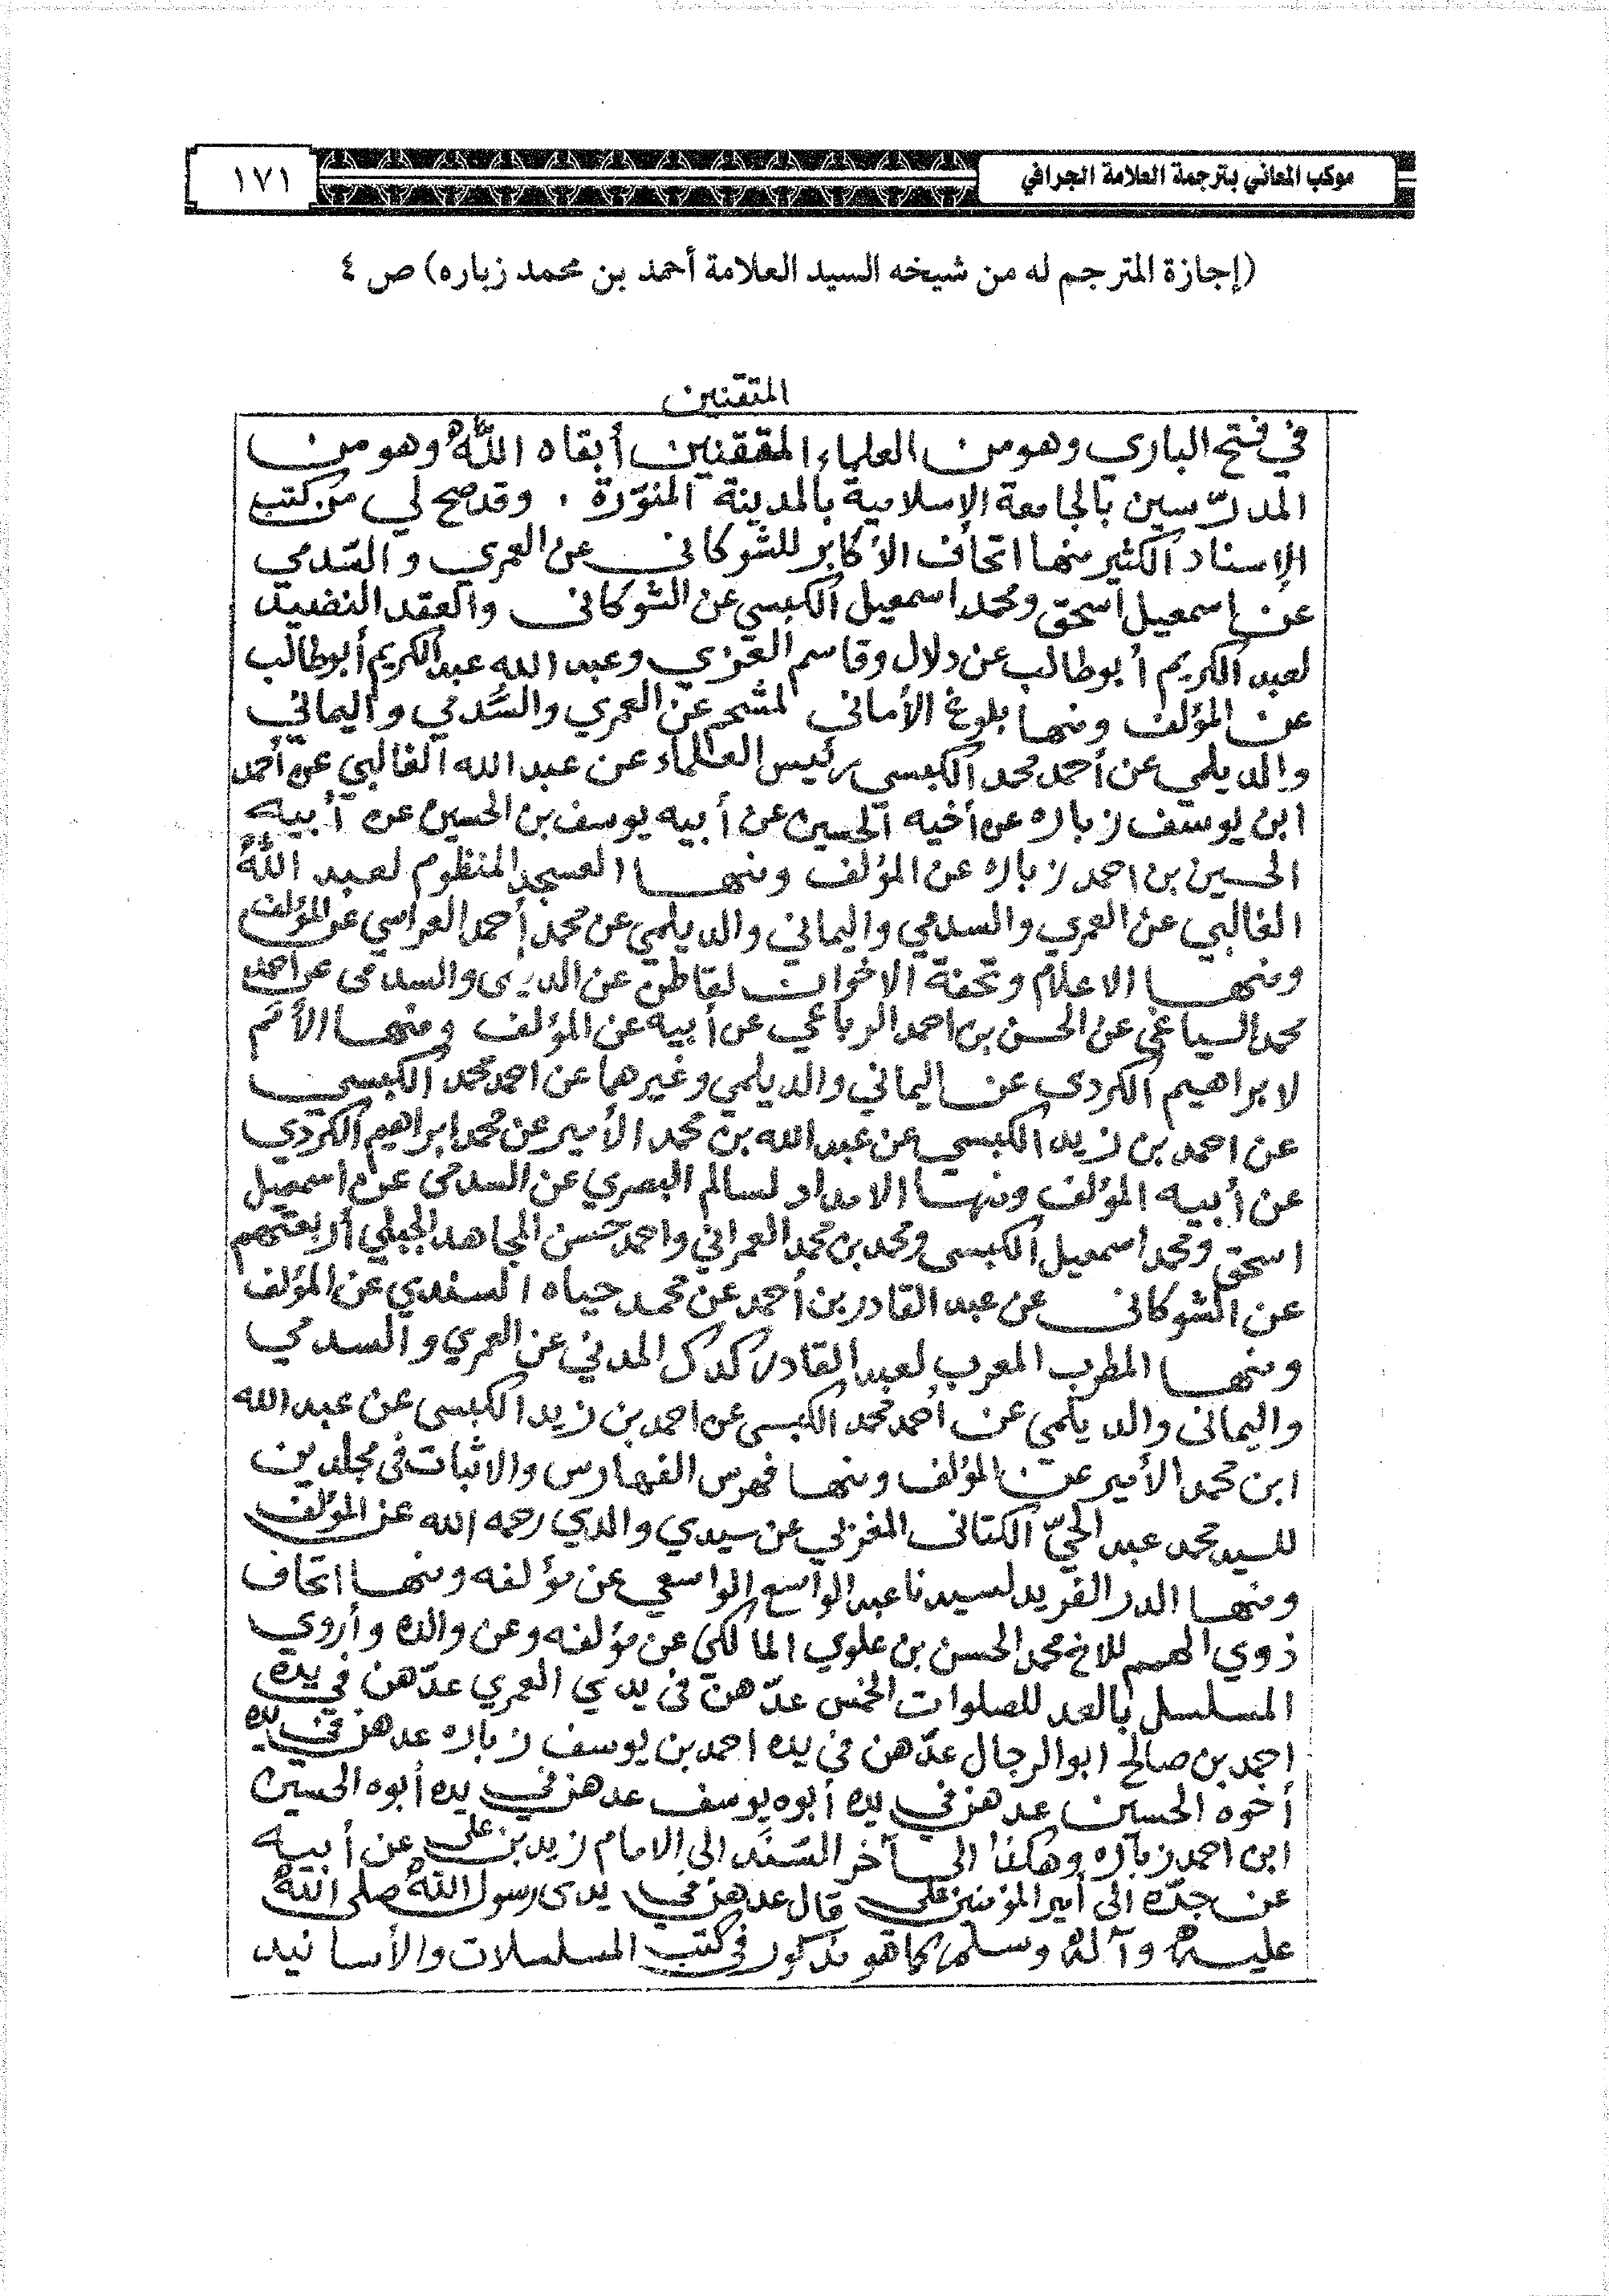 موكب المعاني بترجمة العلامة الجرافي
١٧١
(إجازة المترجم له من شيخه السيد العلامة أحمد بن محمد زباره) ص ٤
المتقنين
في فتح الباري وهو من العلماء المتقنين أبقاه الله وهو من
المدرّسين بالجامعة الإسلامية بالمدينة المنوّرة ، وقد صح لي من كتب
الإسناد الكثير منها اتحاف الأكابر للشوكاني عن العمري والسّدمي
عن إسمعيل اسحق ومحمد اسمعيل الكبسي عن الشوكاني والعقد النضيد
لعبد الكريم أبوطالب عن دلال وقاسم العزي وعبد الله عبد الكريم أبوطالب
عن المؤلف ومنها بلوغ الأماني لمشحم عن العمري والسَّدمي واليماني
والديلمي عن أحمد محمد الكبسي رئيس العلماء عن عبد الله الغالبي عن أحمد
ابن يوسف زباره عن أخيه الحسين عن أبيه يوسف بن الحسين عن أبيه
الحسين بن احمد زباره عن المؤلف ومنها العسجد المنظوم لعبد الله
الغالبي عن العمري والسدمي واليماني والديلمي عن محمد أحمد العراسي عن المؤلف
ومنها الاعلام وتحفة الاخوان لقاطن عن والسدمي عن احمد
محمد السياغي عن الحسن بن احمد الرباعي عن أبيه عن المؤلف ومنها الأمم
لابراهيم الكردي عن اليماني والديلمي وغيرهما عن احمد محمد الكبسي
عن احمد بن زيد الكبسي عن عبد الله بن محمد الأمير عن محمد ابراهيم الكردي
عن أبيه المؤلف ومنها الامداد لسالم البصري عن السدمي عن اسمعيل
اسحق ومحمد اسمعيل الكبسي ومحمد بن محمد العمراني واحمد حسن المجاهد الجبلي أربعتهم
عن الشوكاني عن عبد القادر بن أحمد عن محمد حياه السندي عن المؤلف
ومنها المطرب المعرب لعبد القادر كدك المدني عن العمري والسدمي
واليماني والديلمي عن أحمد محمد الكبسي عن احمد بن زيد الكبسي عن عبد الله
ابن محمد الأمير عن المؤلف ومنها فهرس الفهارس والاثبات في مجلدين
للسيد محمد عبد الحيّ الكتاني المغربي عن سيدي والدي رحمه الله عن المؤلف
ومنها الدر الفريد لسيدنا عبد الواسع الواسعي عن مؤلفه ومنها اتحاف
ذوي الهمم للاخ محمد الحسن بن علوي المالكي عن مؤلفه وعن والده وأروي
المسلسل بالعد للصلوات الخمس عدّهن في يدي العمري عدّهن في يده
احمد بن صالح ابو الرجال عدّهن في يده احمد بن يوسف زباره عدهن في يده
أخوه الحسين عدهن في يده أبوه يوسف عدهن في يده أبوه الحسين
ابن احمد زباره وهكذا الى آخر السّند الى الامام زيد بن علي عن أبيه
عن جدّه الى أمير المؤمنين علي قال عدهن في يدي رسول الله صلى الله
عليه وآله وسلم كما هو مذكور في كتب المسلسلات والأسانيد